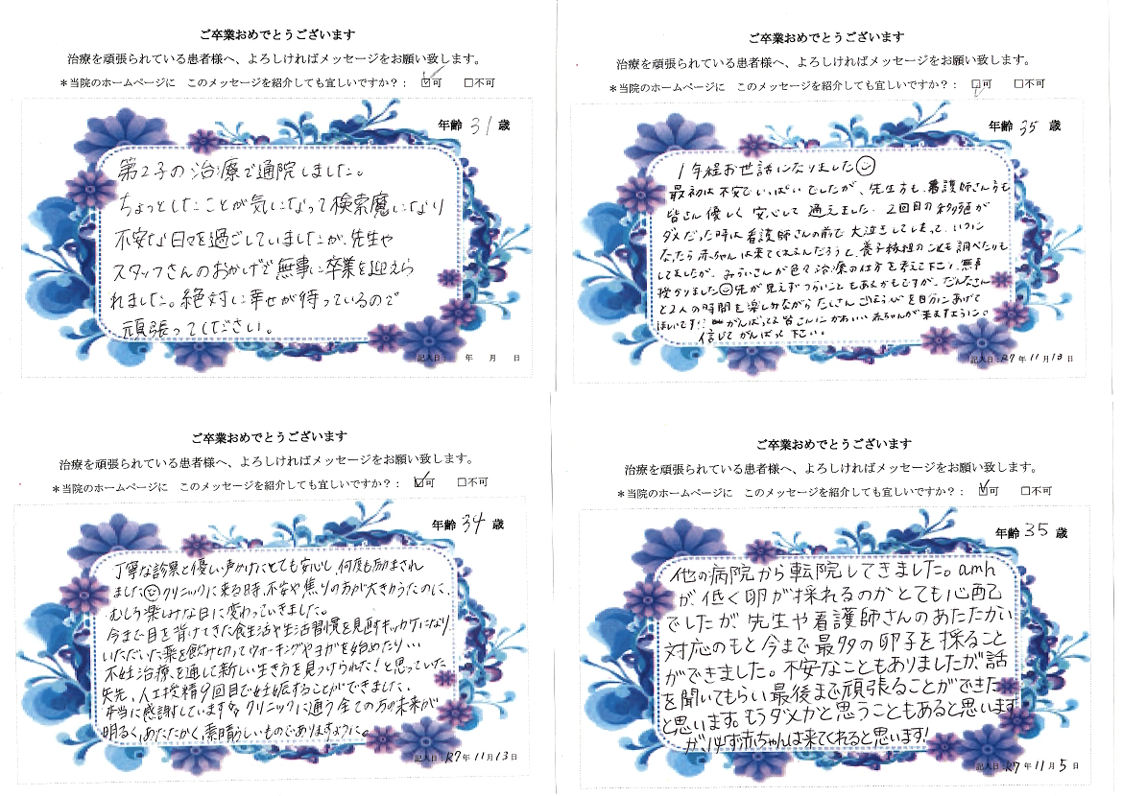 ご卒業おめでとうございます
治療を頑張られている患者様へ、よろしければメッセージをお願い致します。
＊当院のホームページに　このメッセージを紹介しても宜しいですか？： ☑可 □不可
年齢 31 歳
第2子の治療で通院しました。
ちょっとしたことが気になって検索魔になり
不安な日々を過ごしていましたが、先生や
スタッフさんのおかげで無事に卒業を迎えら
れました。絶対に幸せが待っているので
頑張ってください。
記入日： 年 月 日
ご卒業おめでとうございます
治療を頑張られている患者様へ、よろしければメッセージをお願い致します。
＊当院のホームページに　このメッセージを紹介しても宜しいですか？： ☑可 □不可
年齢 35 歳
1年程お世話になりました☺
最初は不安でいっぱいでしたが、先生方も、看護師さん方も
皆さん優しく安心して通えました。2回目の移植が
ダメだった時は看護師さんの前で大泣きしてしまって、いつに
なったら赤ちゃんは来てくれるんだろうと、養子縁組のことも調べたりも
してましたが、みういさんが色々治療の仕方を考えて下さり、無事
授かりました☺先が見えずつらいこともあるかもですが、だんなさん
と2人の時間を楽しみながらたくさんごほうびを自分にあげて
ほしいです!! がんばってる皆さんにかわいい赤ちゃんが来ますように。
信じてがんばって下さい。
記入日：R7年11月10日
ご卒業おめでとうございます
治療を頑張られている患者様へ、よろしければメッセージをお願い致します。
＊当院のホームページに　このメッセージを紹介しても宜しいですか？： ☑可 □不可
年齢 34 歳
丁寧な診察と優しい声かけにとても安心し、何度も励まされ
ました☺クリニックに来る時、不安や焦りの方が大きかったのに、
むしろ楽しみな日に変わっていきました。
今まで目を背けてきた食生活や生活習慣を見直すキッカケになり
いただいた薬を飲み切ってウォーキングやヨガを始めたり…
不妊治療を通して新しい生き方を見つけられた!と思っていた
矢先、人工授精9回目で妊娠することができました。
本当に感謝しています クリニックに通う全ての方の未来が
明るく、あたたかく、素晴らしいものでありますように。
記入日：R7年11月13日
ご卒業おめでとうございます
治療を頑張られている患者様へ、よろしければメッセージをお願い致します。
＊当院のホームページに　このメッセージを紹介しても宜しいですか？： ☑可 □不可
年齢 35 歳
他の病院から転院してきました。amh
が低く卵が採れるのかとても心配
でしたが先生や看護師さんのあたたかい
対応のもと今まで最多の卵子を採ること
ができました。不安なこともありましたが話
を聞いてもらい最後まで頑張ることができた
と思います。もうダメかと思うこともあると思います
が必ず赤ちゃんは来てくれると思います!
記入日：R7年11月5日